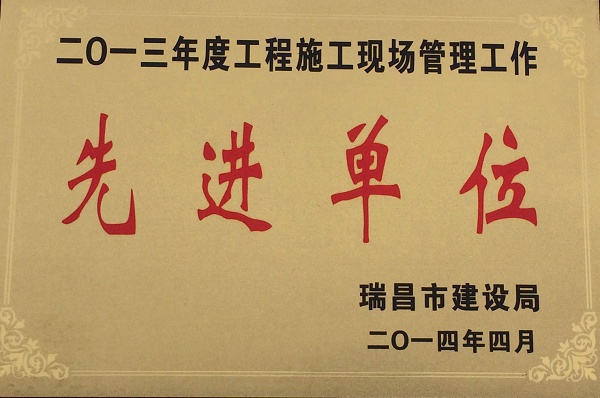 二〇一三年度工程施工现场管理工作
先进单位
瑞昌市建设局
二〇一四年四月